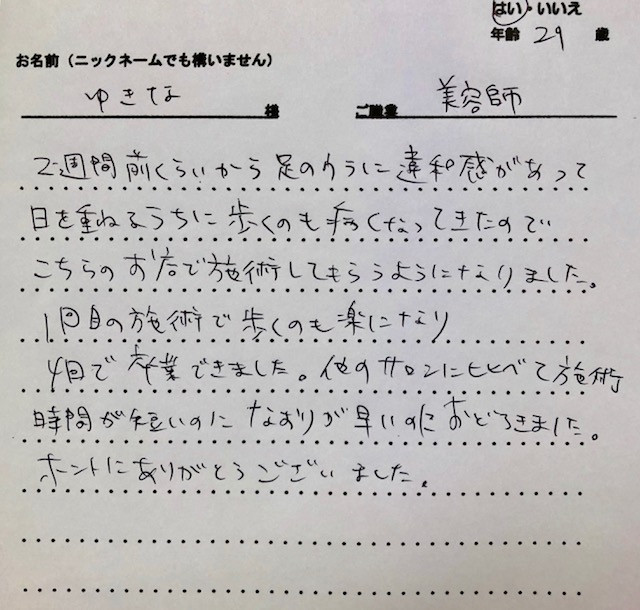 はい・いいえ
年齢 29 歳
お名前（ニックネームでも構いません）
ゆきな 様 ご職業 美容師
2週間前くらいから足のうらに違和感があって
日を重ねるうちに歩くのも痛くなってきたので
こちらのお店で施術してもらうようになりました。
1回目の施術で歩くのも楽になり
4回で卒業できました。他のサロンにヒヒべて施術
時間が短いのになおりが早いのにおどろきました。
ホントにありがとうございました。